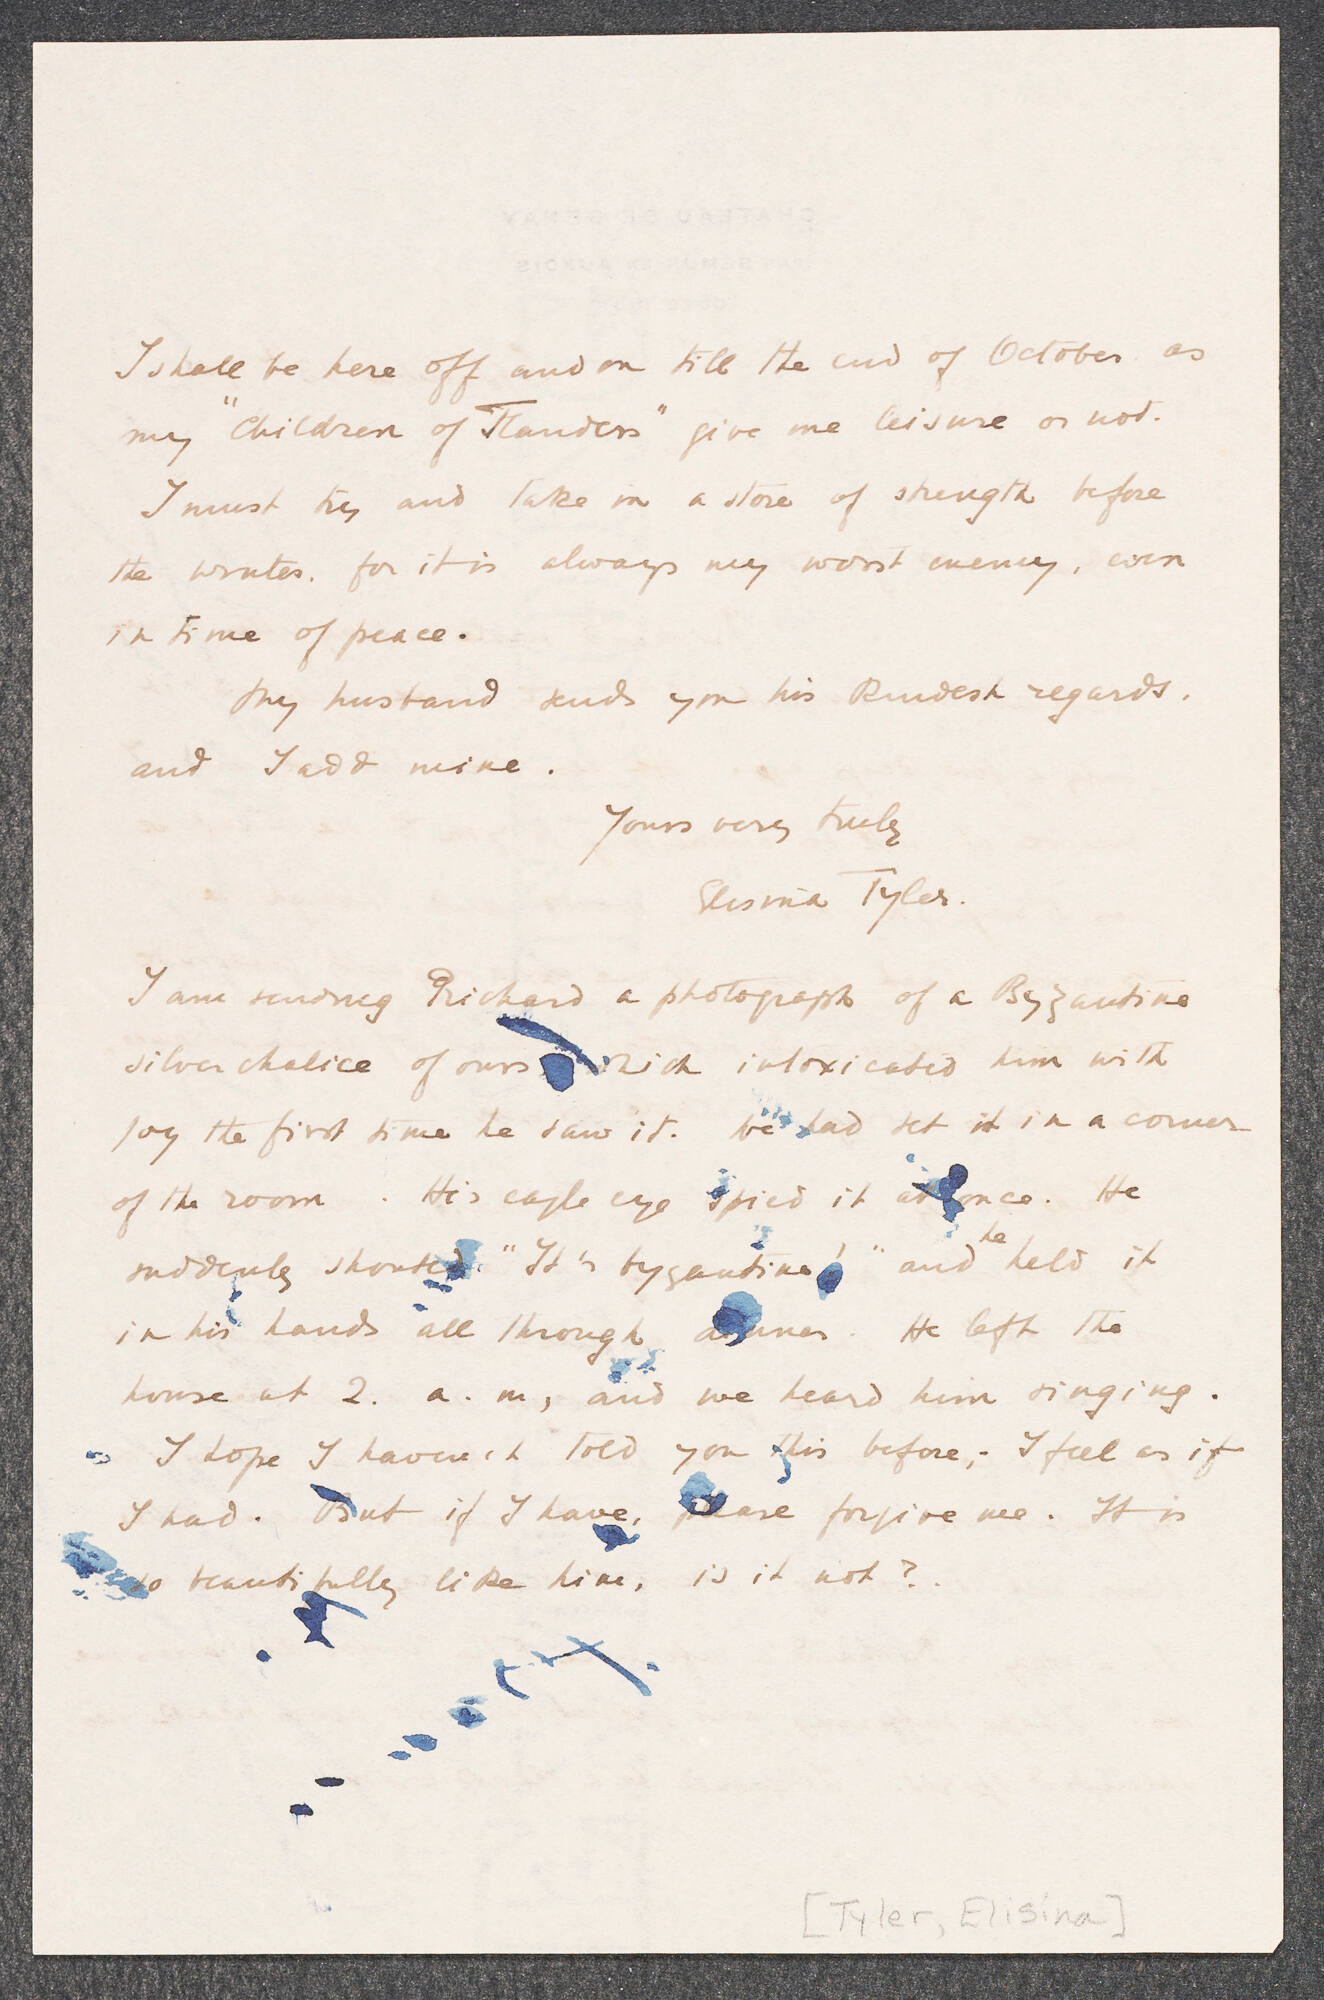 I shall be here off and on till the end of October as
my "Children of Flanders" give me leisure or not.
I must try and take in a store of strength before
the winter. for it is always my worst enemy, even
in time of peace.
My husband sends you his kindest regards.
and I add mine.
Yours very truly
Elisina Tyler.
I am sending Richard a photograph of a Byzantine
silver chalice of ours which intoxicated him with
joy the first time he saw it. We had set it in a corner
of the room. His eagle eye spied it at once. He
suddenly shouted "It's byzantine!" and he held it
in his hands all through dinner. He left the
house at 2. a.m, and we heard him singing.
I hope I haven't told you this before; I feel as if
I had. But if I have, please forgive me. It is
so beautifully like him, is it not?
[Tyler, Elisina]